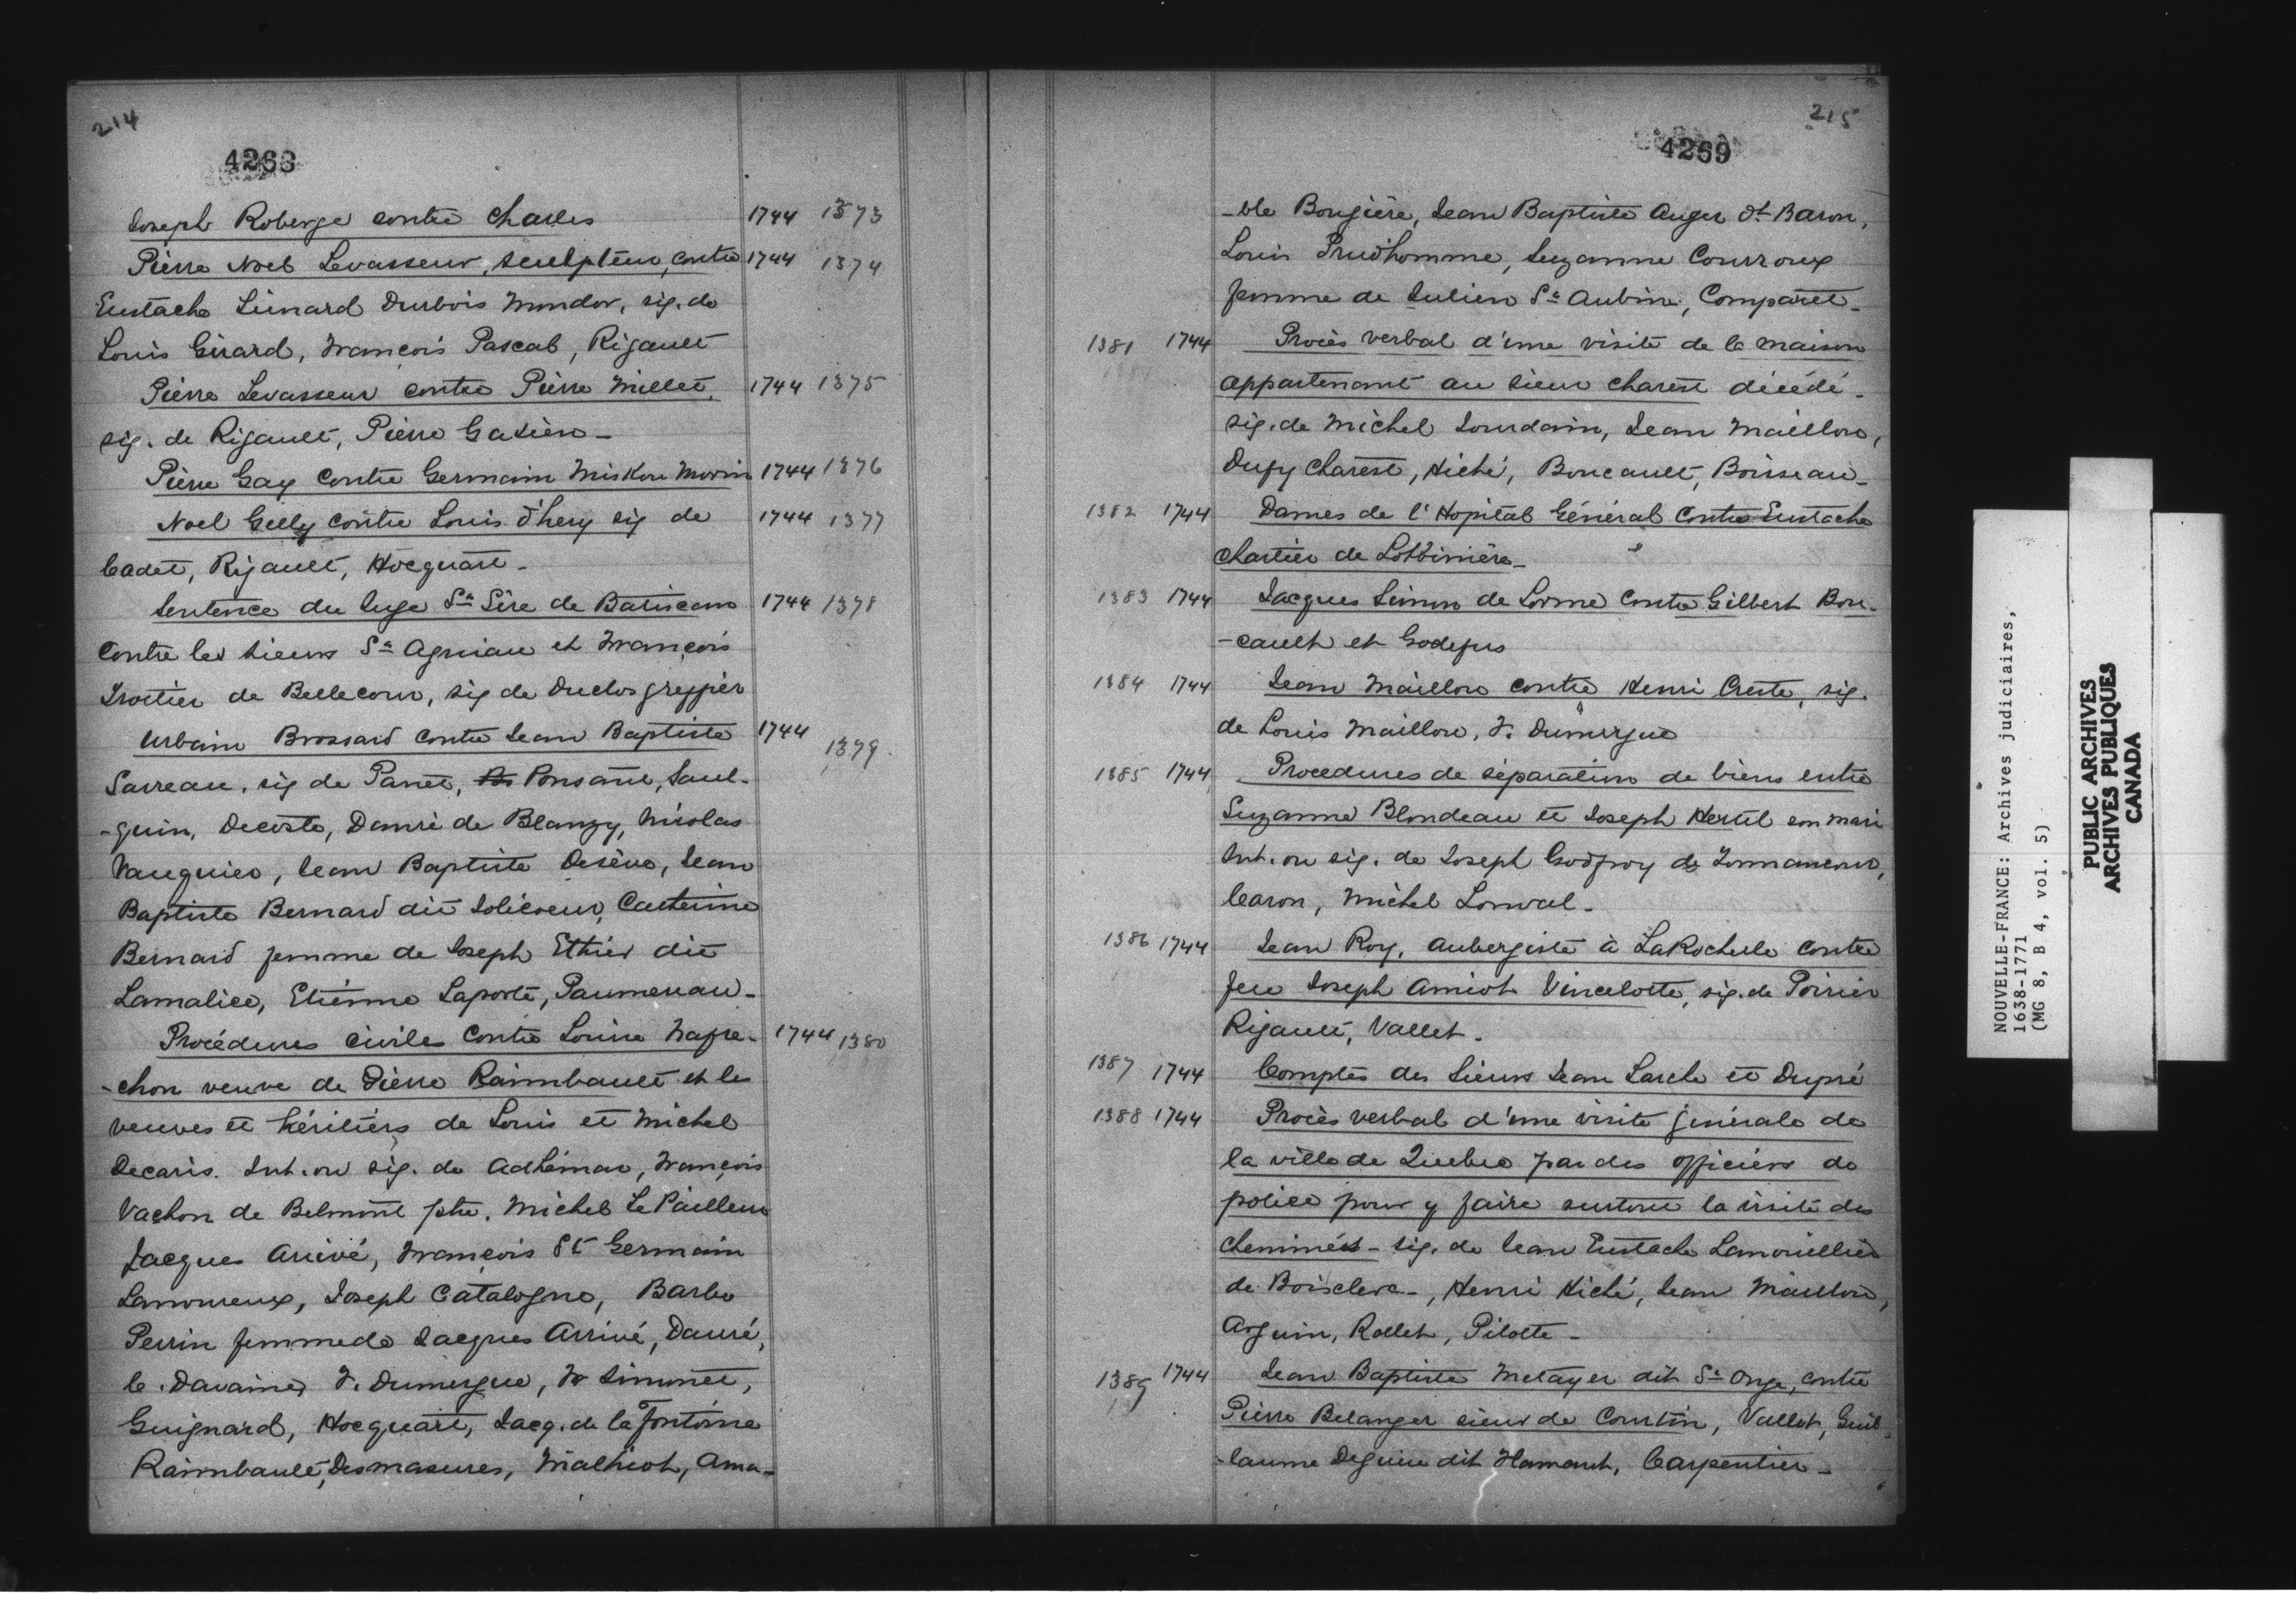 214
4268
Joseph Roberge contre Charles 1744 1373
Pierre Noel Levasseur, sculpteur, contre 1744 1374
Eustache Liénard Durbois Mondor, sig. de
Louis Gérard, François Pascal, Rigault
Pierre Levasseur contre Pierre Millet, 1744 1375
sig. de Rigault, Pierre Gatien -
Pierre Gay contre Germain Miskou Morin 1744 1376
Noel Gelly contre Louis d'hery sig de 1744 1377
Cadet, Rigault, Hocquart -
Sentence du Juge Ste Sére de Batiscan 1744 1378
contre les sieurs St Agniau et François
Trottier de Bellecour, sig de Duclos greffier
Urbain Brossard contre Jean Baptiste 1744 1379
Sarreau, sig de Panet, Ponsant, Saul-
-quin, Decoste, Danré de Blanzy, Nicolas
Vauquier, Jean Baptiste Deséve, Jean
Baptiste Bernard dit Jolicoeur, Catherine
Bernard femme de Joseph Ethier dit
Lamalice, Etienne Laporte, Paumereau -
Procédures civiles contre Louise Nafre- 1744 1380
-chon veuve de Pierre Raimbault et les
veuves et héritiers de Louis et Michel
Decaris. Int. ou sig. de Adhémar, François
Vachon de Belmont ptre. Michel Le Pailleur
Jacques Arrivé, François St Germain
Lamoureux, Joseph Catalogne, Barbe
Perrin femme de Jacques Arrivé, Danré,
le. Davaine, F. Dumergue, Fr Simonet,
Guignard, Hocquart, Jacq. de la Fontaine
Raimbault, Desmasures, Malhiot, Ama-
215
4269
-ble Bougiere, Jean Baptiste Auger dt Baron,
Louis Prudhomme, Suzanne Courroux
femme de Julien St Aubin, Comparet -
1381 1744 Procès verbal d'une visite de la maison
appartenant au sieur Charest décédé -
sig. de Michel Jourdain, Jean Maillou,
Dufy Charest, Hiché, Boucault, Boisseau -
1382 1744 Dames de l'Hopital Général contre Eustache
Chartier de Lotbiniére -
1383 1744 Jacques Simon de Lorme contre Gilbert Bou-
-cault et Godefus
1384 1744 Jean Maillou contre Henri Creste, sig.
de Louis Maillou, F. Dumergue
1385 1744 Procedures de séparation de biens entre
Suzanne Blondeau et Joseph Hertel son mari
Int. ou sig. de Joseph Godfroy de Tonnancour,
Caron, Michel Lonval -
1386 1744 Jean Roy, aubergiste à LaRochelle contre
feu Joseph Amiot Vincelotte, sig. de Poirier
Rigault, Vallet -
1387 1744 Comptes des Sieurs Jean Larche et Dupré
1388 1744 Procès verbal d'une visite générale de
la ville de Quebec par des officiers de
police pour y faire surtout la visite des
cheminées - sig. de Jean Eustache Lanouillier
de Boisclerc -, Henri Hiché, Jean Maillou,
Arguin, Rollet, Pilotte -
1389 1744 Jean Baptiste Metayer dit St Onge, contre
Pierre Belanger sieur de Courtin, Vallet, Guil-
-laume Deguise dit Flamant, Carpentier -
NOUVELLE-FRANCE: Archives judiciaires,
1638-1771
(MG 8, B 4, vol. 5)
PUBLIC ARCHIVES
ARCHIVES PUBLIQUES
CANADA